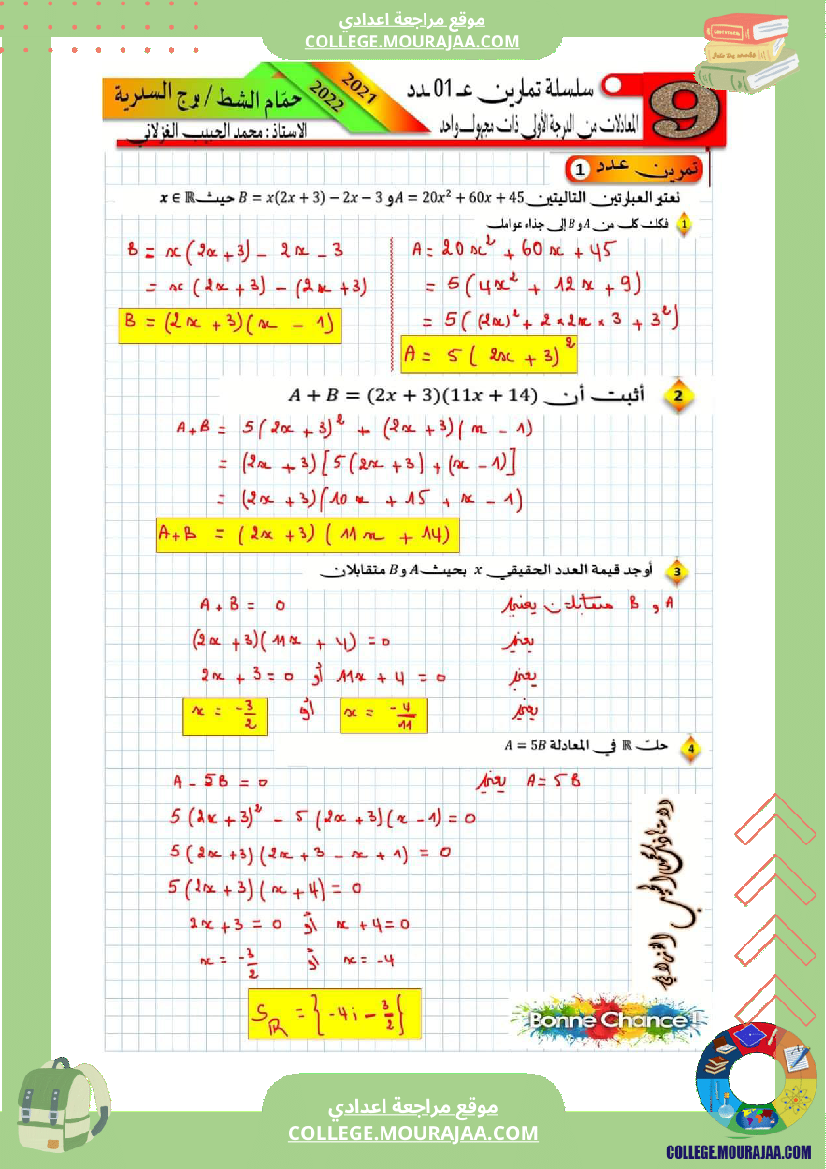 موقع مراجعة اعدادي
COLLEGE.MOURAJAA.COM
9
سلسلة تمارين عـ01ـدد
المعادلات من الدرجة الأولى ذات مجهول واحد
2021
2022
حمّام الشط / برج السدرية
الأستاذ : محمد الحبيب الغزلاني
تمرين عدد 1
نعتبر العبارتين التاليتين A = 20x² + 60x + 45 و B = x(2x + 3) − 2x − 3 حيث x ∈ ℝ
1 فكك كل من A و B إلى جذاء عوامل
A = 20x² + 60x + 45
= 5(4x² + 12x + 9)
= 5((2x)² + 2×2x×3 + 3²)
A = 5(2x + 3)²
B = x(2x+3) − 2x − 3
= x(2x+3) − (2x+3)
B = (2x+3)(x − 1)
2 أثبت أن A + B = (2x + 3)(11x + 14)
A+B = 5(2x+3)² + (2x+3)(x − 1)
= (2x+3)[5(2x+3) + (x − 1)]
= (2x+3)(10x + 15 + x − 1)
A+B = (2x+3)(11x + 14)
3 أوجد قيمة العدد الحقيقي x بحيث A و B متقابلان
A و B متقابلان يعني A + B = 0
يعني (2x+3)(11x + 4) = 0
يعني 2x + 3 = 0 أو 11x + 4 = 0
يعني x = -3/2 أو x = -4/11
4 حل في ℝ المعادلة A = 5B
A = 5B يعني A − 5B = 0
5(2x+3)² − 5(2x+3)(x − 1) = 0
5(2x+3)(2x+3 − x + 1) = 0
5(2x+3)(x+4) = 0
2x+3 = 0 أو x+4=0
x = -3/2 أو x = -4
Sℝ = {-4; -3/2}
Bonne Chance !
موقع مراجعة اعدادي
COLLEGE.MOURAJAA.COM
COLLEGE.MOURAJAA.COM